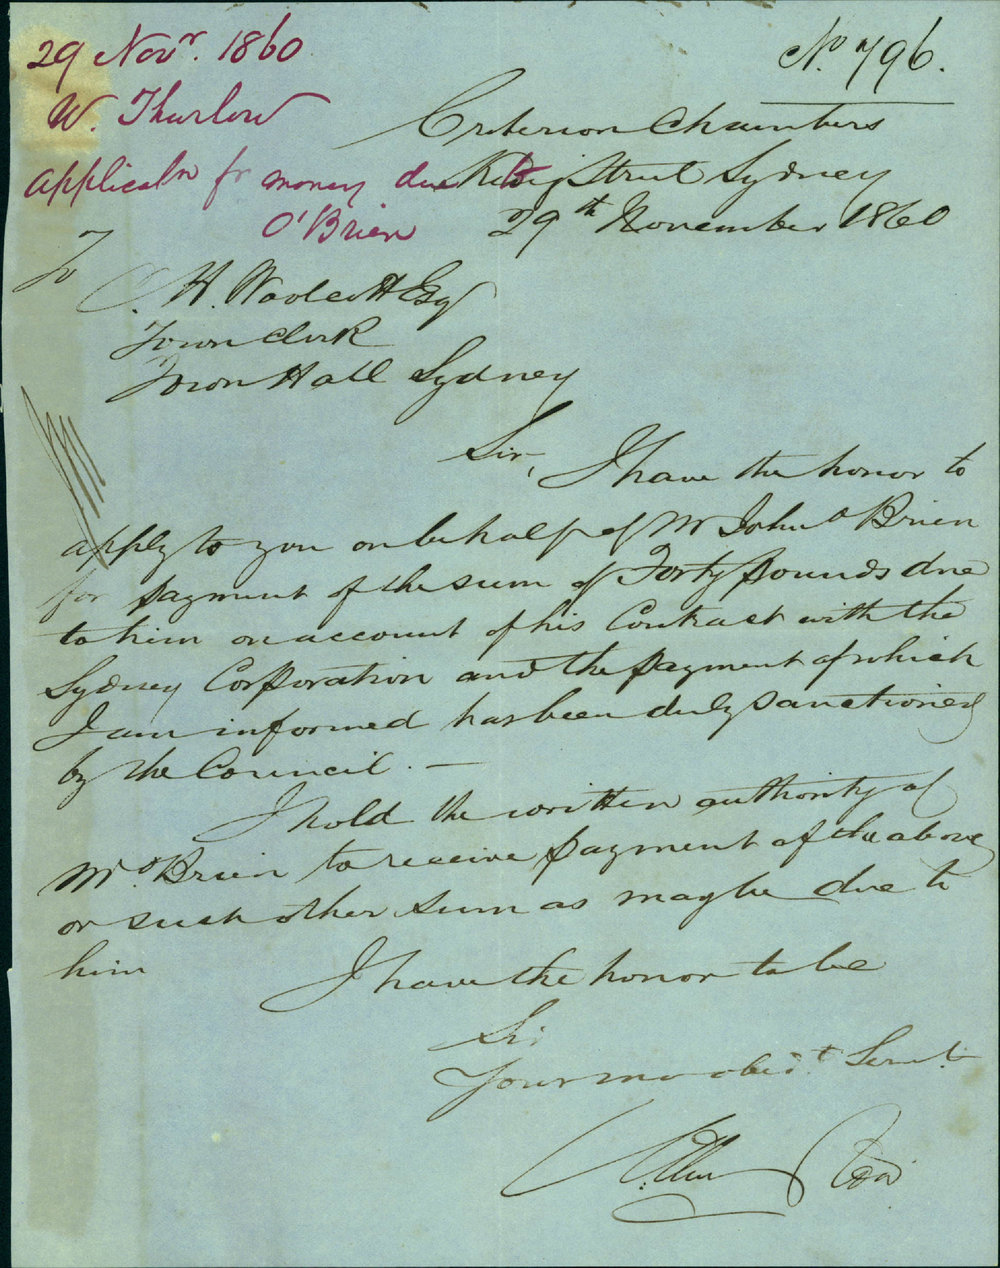 29 Novr. 1860
W. Thurlow
applicatn fr money due to
O'Brien
No 796.
Criterion Chambers
King Street Sydney
29th November 1860
To
C. H. Woolcott Esq
Town Clerk
Town Hall Sydney
Sir, I have the honor to
apply to you on behalf of Mr John O Brien
for payment of the sum of Forty pounds due
to him on account of his Contract with the
Sydney Corporation and the payment of which
I am informed has been duly sanctioned
by the Council. —
I hold the written authority of
Mr O Brien to receive payment of the above
or such other sum as may be due to
him
I have the honor to be
Sir
Your mo obedt. Servt.